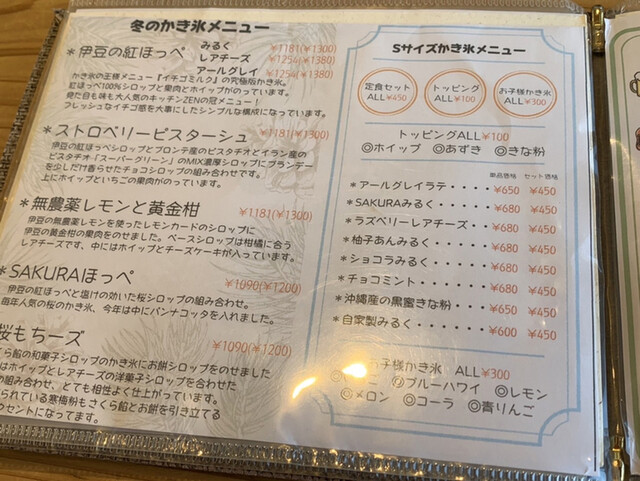 冬のかき氷メニュー
＊伊豆の紅ほっぺ みるく ¥1181(¥1300)
レアチーズ ¥1254(¥1380)
アールグレイ ¥1254(¥1380)
かき氷の王様メニュー『イチゴミルク』の究極版かき氷。
紅ほっぺ100%シロップと果肉とホイップがのっています。
見た目も味も大人気のキッチンZENの冠メニュー！
フレッシュなイチゴ感を大事にしたシンプルな構成になっています。
＊ストロベリーピスターシュ ¥1181(¥1300)
伊豆の紅ほっぺシロップとブロンテ産のピスタチオとイラン産の
ピスタチオ「スーパーグリーン」のMIX濃厚シロップにブランデー
を少しだけ香らせたチョコシロップの組み合わせです。
上にホイップといちごの果肉がのっています。
＊無農薬レモンと黄金柑 ¥1181(¥1300)
伊豆の無農薬レモンを使ったレモンカードのシロップに
伊豆の黄金柑の果肉をのせました。ベースシロップは柑橘に合う
レアチーズです、中にはホイップとチーズケーキが入っています。
＊SAKURAほっぺ ¥1090(¥1200)
伊豆の紅ほっぺと塩けの効いた桜シロップの組み合わせ。
毎年人気の桜のかき氷、今年は中にパンナコッタを入れました。
桜もちーズ ¥1090(¥1200)
くら餡の和菓子シロップのかき氷にお餅シロップをのせました
はホイップとレアチーズの洋菓子シロップを合わせた
の組み合わせ、とても相性よく仕上がっています。
られている寒梅粉もさくら餡とお餅を引き立てる
のセントになってます。
Sサイズかき氷メニュー
定食セット ALL¥450
トッピング ALL¥100
お子様かき氷 ALL¥300
トッピングALL¥100
◎ホイップ ◎あずき ◎きな粉
単品価格 セット価格
＊アールグレイラテ・・・・・¥650 ¥450
＊SAKURAみるく・・・・・・¥680 ¥450
＊ラズベリーレアチーズ・・・¥680 ¥450
＊柚子あんみるく・・・・・・¥680 ¥450
＊ショコラみるく・・・・・・¥680 ¥450
＊チョコミント・・・・・・・¥680 ¥450
＊沖縄産の黒蜜きな粉・・・・¥650 ¥450
＊自家製みるく・・・・・・・¥600 ¥450
お子様かき氷 ALL ¥300
◎ブルーハワイ ◎レモン
◎メロン ◎コーラ ◎青りんご